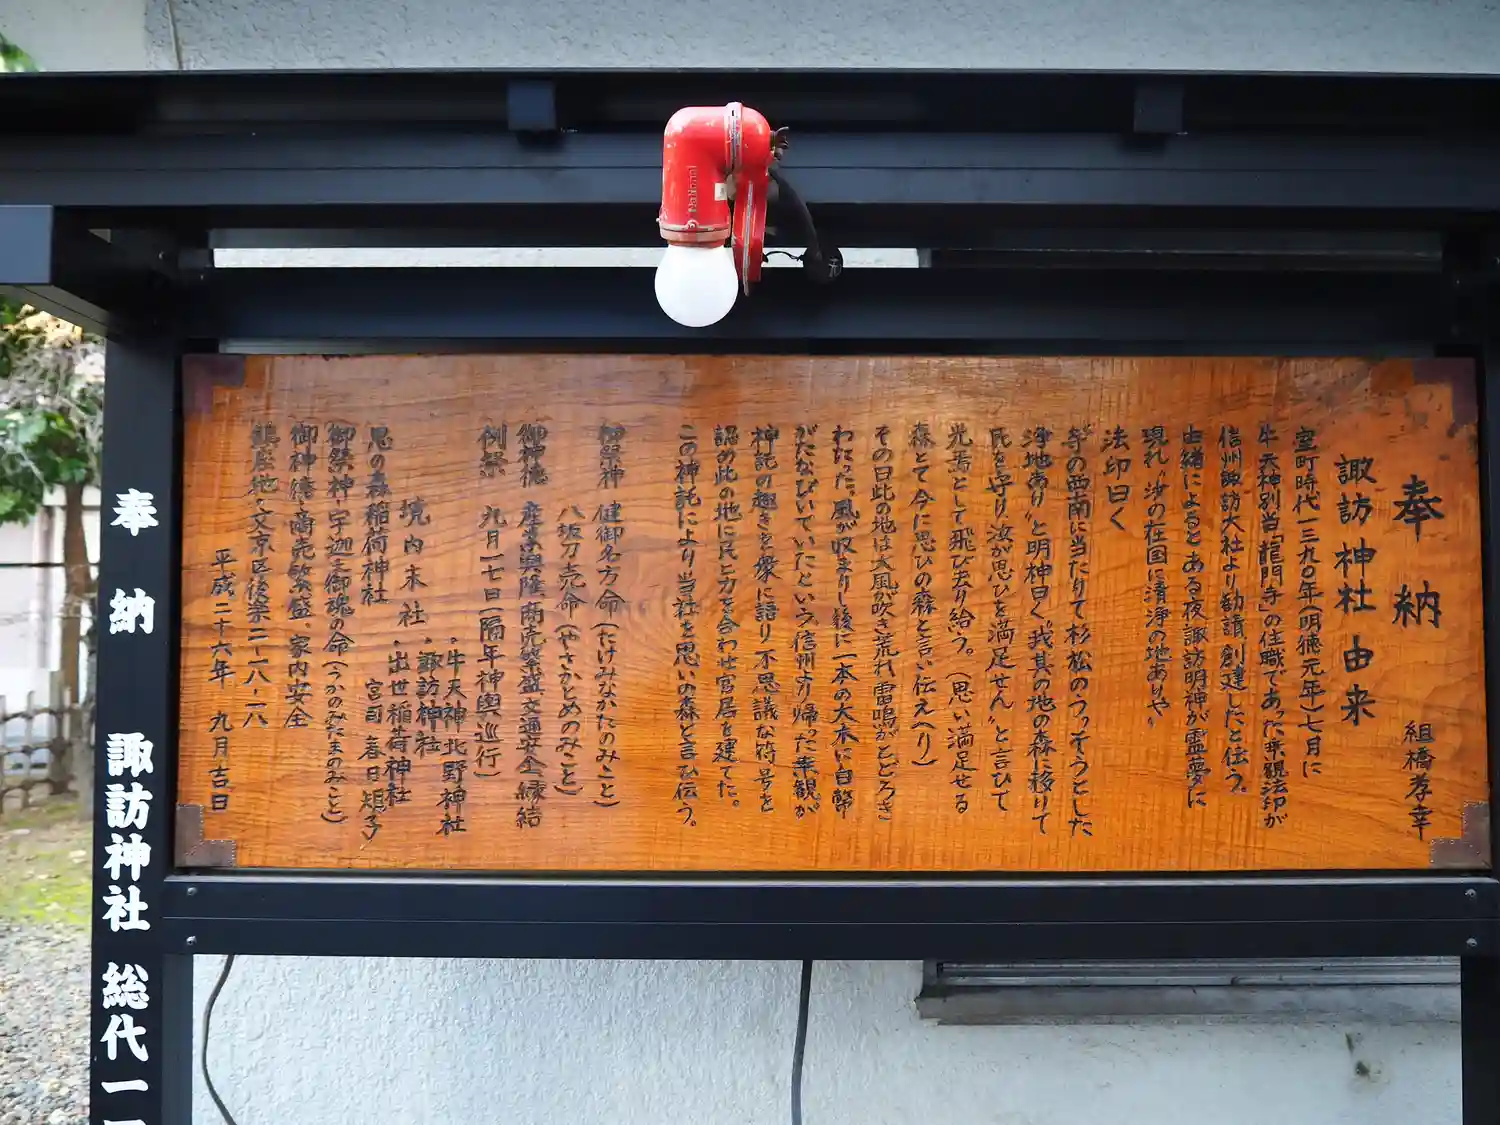 奉納
組橋孝幸
諏訪神社由来
室町時代一三九〇年(明徳元年)七月に
牛天神別当「龍門寺」の住職であった乗観法印が
信州諏訪大社より勧請創建したと伝う。
由緒によると ある夜諏訪明神が霊夢に
現れ〝汝の在国に清浄の地ありや〟
法印曰く
〝寺の西南に当たりて杉松のうっそうとした
浄地あり〟と明神曰く〝我其の地の森に移りて
民を守り汝が思ひを満足せん〟と言ひて
光焉として飛び去り給う。(思い満足せる
森とて今に思ひの森と言い伝えへり)
その日此の地は大風が吹き荒れ雷鳴がとどろき
わたった。風が収まりし後に一本の大木に白幣
がたなびいていたという。信州より帰った乗観が
神託の趣きを衆に語り不思議な符号を
認め此の地に民と力を合わせ宮居を建てた。
この神託により当社を思いの森と言ひ伝う。
御祭神 健御名方命(たけみなかたのみこと)
八坂刀売命(やさかとめのみこと)
御神徳 産業興隆 商売繁盛 交通安全 縁結
例祭 九月二七日(隔年神輿巡行)
境内末社
・牛天神北野神社
・諏訪神社
・出世稲荷神社
宮司 春日矩子
思の森稲荷神社
御祭神・宇迦之御魂の命(うかのみたまのみこと)
御神徳・商売繁盛。家内安全
鎮座地・文京区後楽二-一八-一八
平成二十六年 九月吉日
奉納 諏訪神社 総代一
National